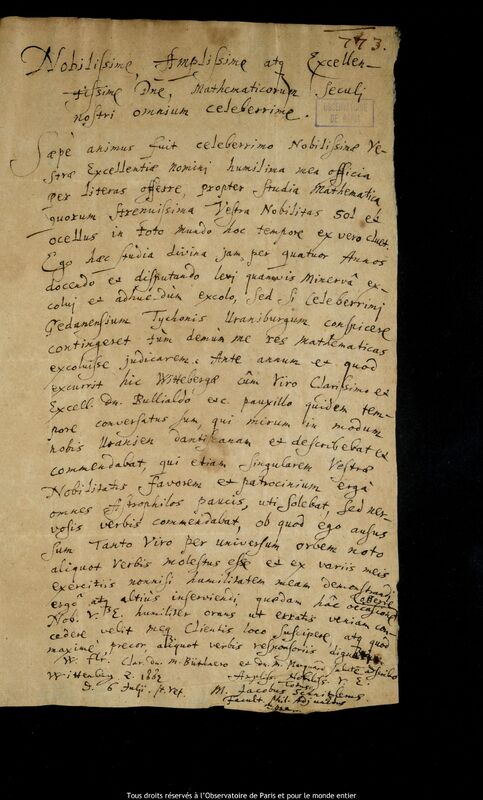 773.
Nobilissime, Amplissime atq Excellen-
tissime Dne, Mathematicorum Seculj
nostri omnium celeberrime.
OBSERVATOIRE
DE PARIS
Sæpè animus fuit celeberrimo Nobilissimæ Ve-
stræ Excellentiæ nominj humilima mea officia
per literas offerre, propter studia Mathematica
quorum strenuissima Vestra Nobilitas Sol et
ocellus in toto mundo hoc tempore ex vero cluet.
Ego hæc studia divina jam per quatuor Annos
docendo et disputando levj quamvis Minervâ ex-
coluj et adhucdùm excolo, sed si Celeberrimj
Gedanensium Tychonis Uraniburgum conspicere
contingeret tùm demùm me res mathematicas
excoluisse judicarem. Ante annum et quod
excurrit hic Wittebergæ cùm Viro Clarissimo et
Excell. Dn. Bullialdo etc. pauxillo quidem tem-
pore conversatus sum, qui mirum in modum
nobis Uranien dantiscanam et describebat et
commendabat, qui etiam singularem Vestræ
Nobilitatis favorem et patrocinium ergà
omnes Astrophilos paucis, uti solebat, sed ner-
vosis verbis commendabat, ob quod ego ausus
sum Tanto Viro per universum orbem noto
aliquot verbis molestus esse et ex variis meis
exercitiis nonnisi humilitatem meam demonstrandi
ergò atq altius inserviendi quædam hâc occasione offerre
Nob. V. E. humiliter orans ut erratis veniam con-
cedere velit meq Clientis loco suscipere, atq quod
maximè precor, aliquot verbis responsoriis
Clar. dn. M. Büthnero et dn. M.
Wittenberg A. 1662
d. 6 Julij. st. vet.
Nobilis. V. E.
M. Jacobus
Facult. Phil. Adjunctus
Tous droits réservés à l'Observatoire de Paris et pour le monde entier